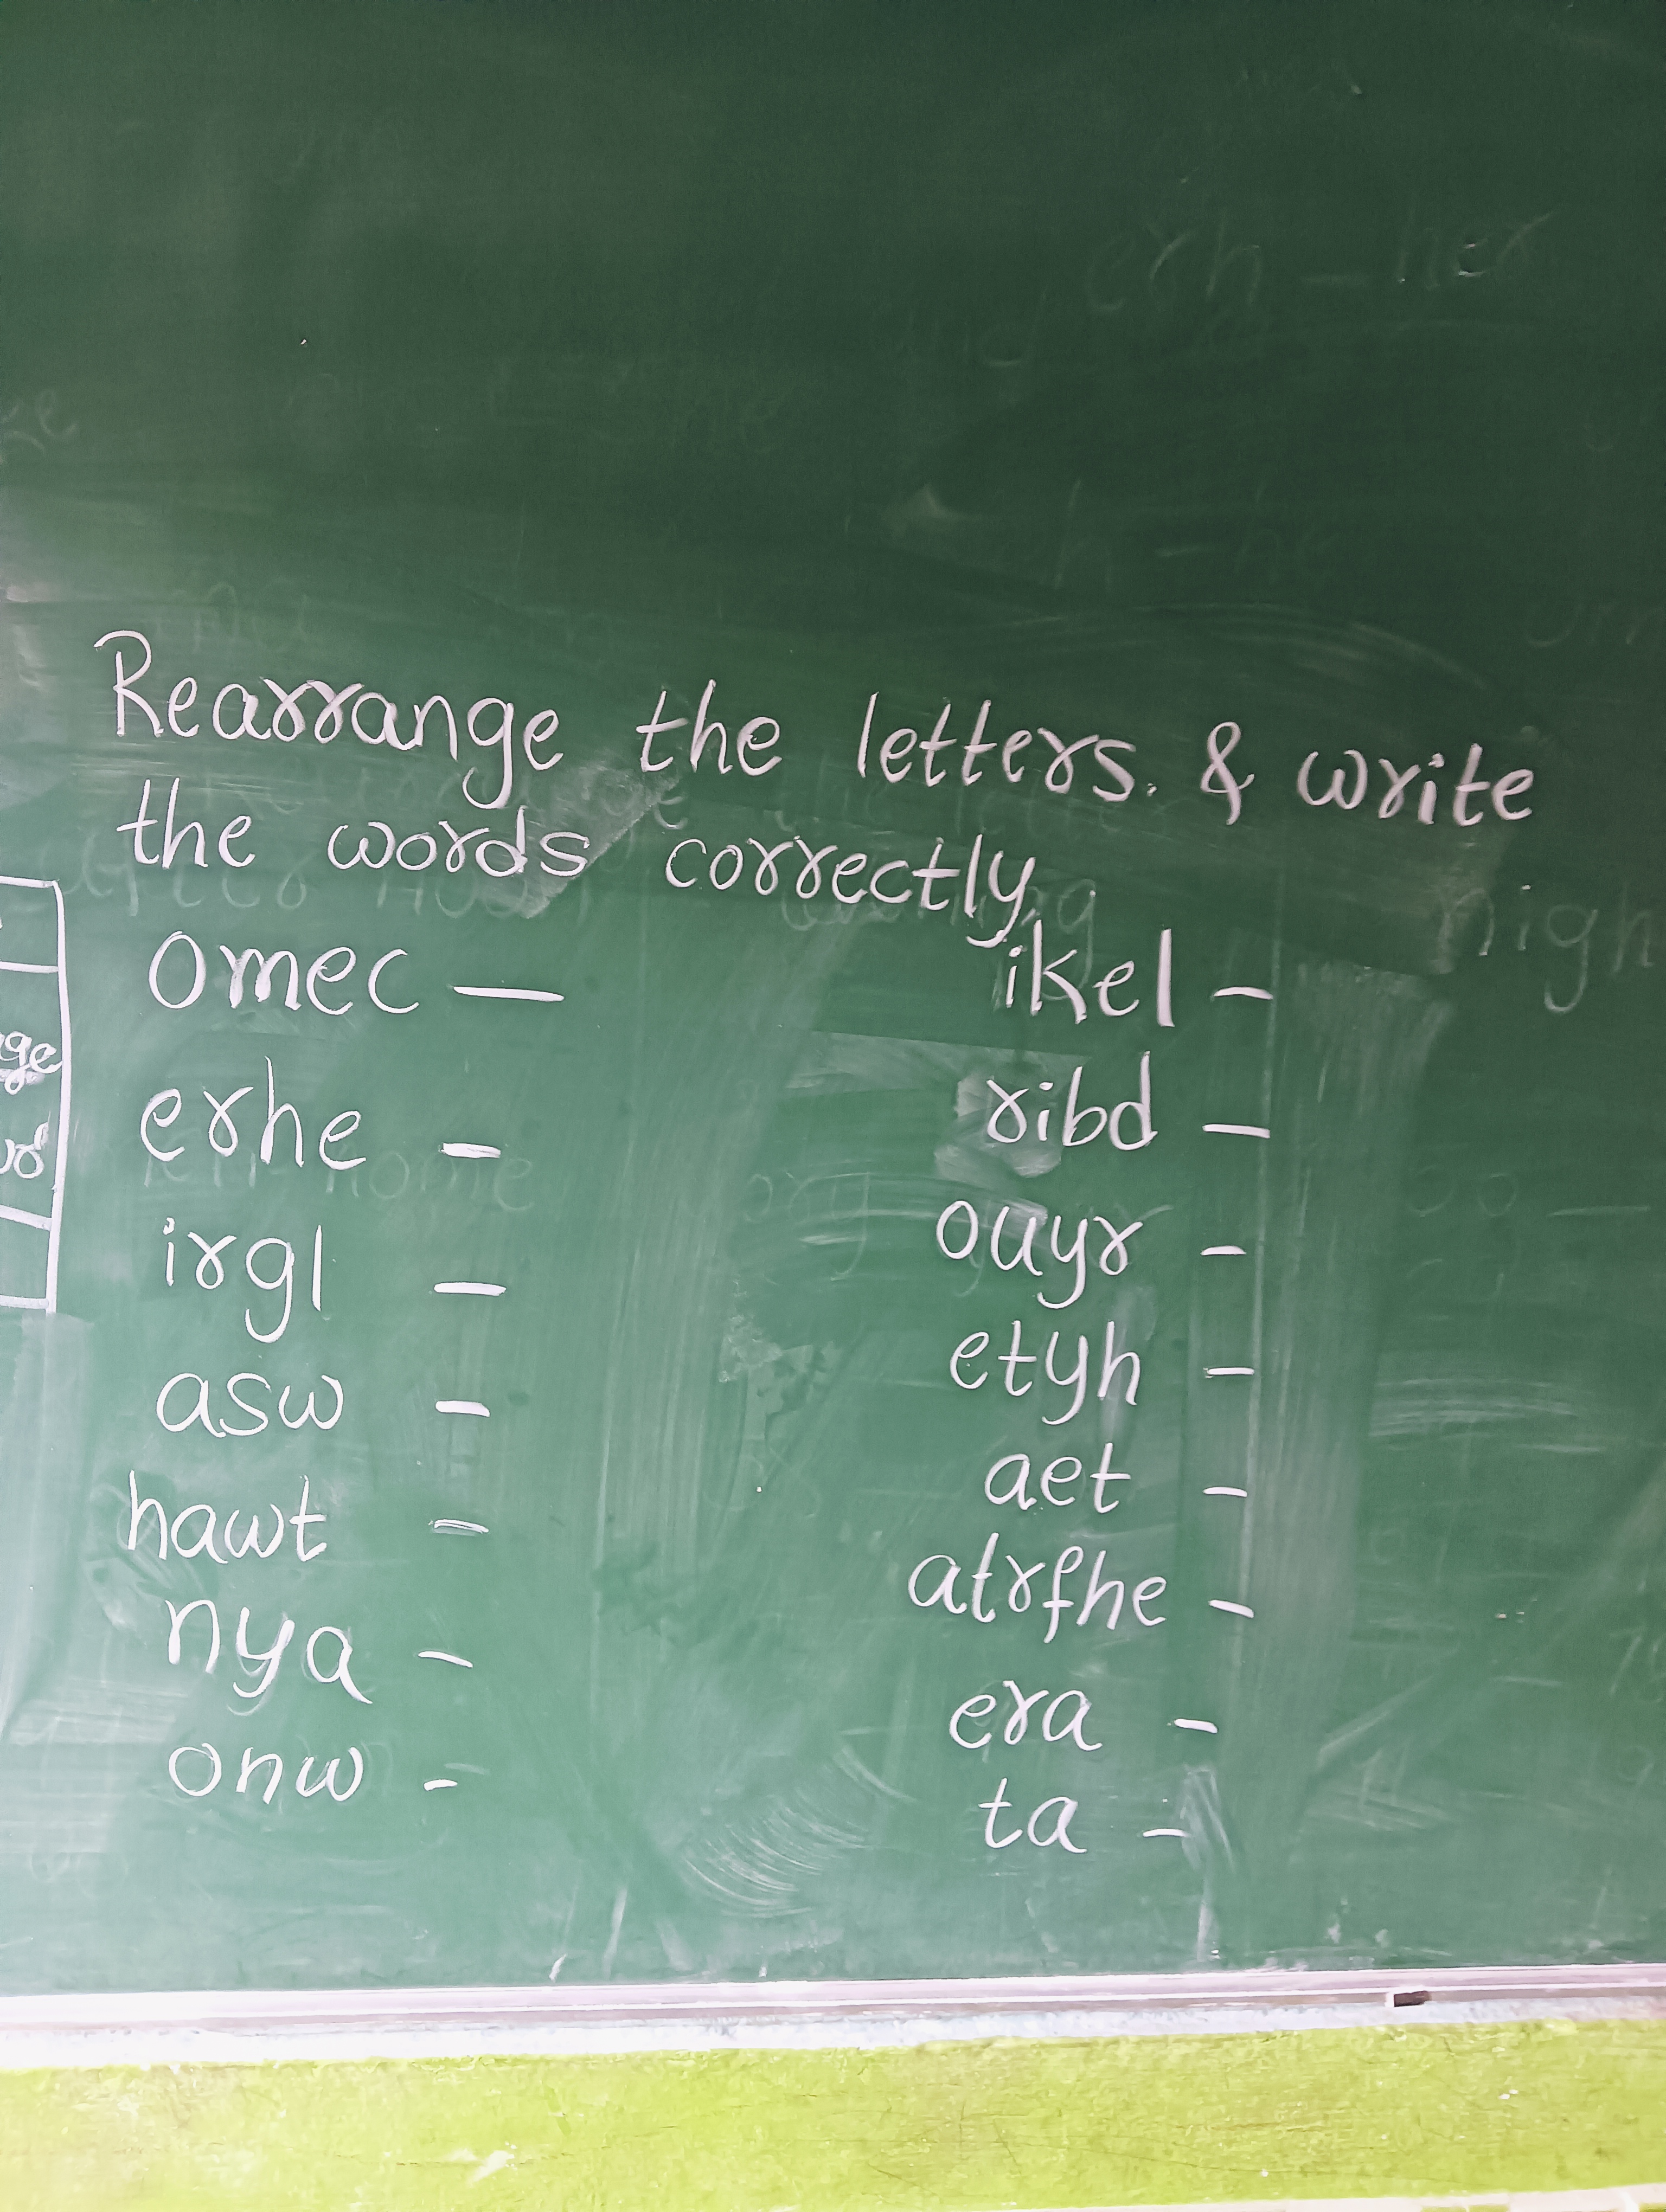 Rearrange the letters. & write
the words correctly.
omec —
erhe –
irgl –
asw –
hawt –
nya –
onw –
ikel –
ribd –
ouyr –
etyh –
aet –
atrfhe –
era –
ta –
ge